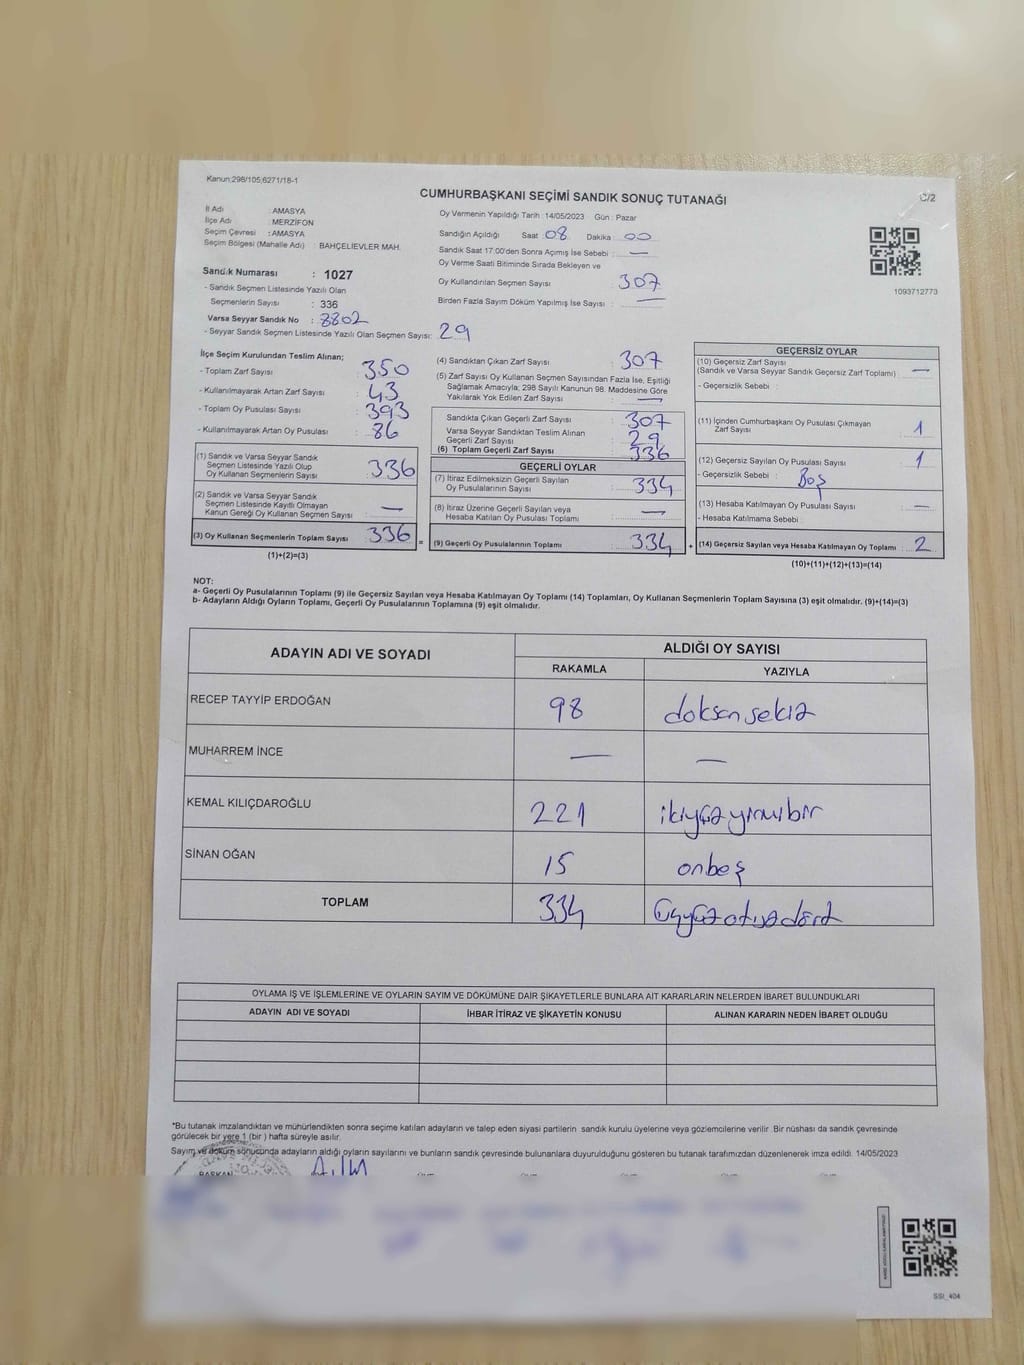 Kanun:298/105,6271/18-1
CUMHURBAŞKANI SEÇİMİ SANDIK SONUÇ TUTANAĞI
C/2
İl Adı : AMASYA
İlçe Adı : MERZİFON
Seçim Çevresi : AMASYA
Seçim Bölgesi (Mahalle Adı) : BAHÇELİEVLER MAH.
Oy Vermenin Yapıldığı Tarih :14/05/2023 Gün : Pazar
Sandığın Açıldığı Saat 08 Dakika 00
Sandık Saat 17:00'den Sonra Açımış İse Sebebi : —
Oy Verme Saati Bitiminde Sırada Bekleyen ve
Oy Kullandırılan Seçmen Sayısı : 307
Birden Fazla Sayım Döküm Yapılmış İse Sayısı : —
1093712773
Sandık Numarası : 1027
- Sandık Seçmen Listesinde Yazılı Olan
Seçmenlerin Sayısı : 336
Varsa Seyyar Sandık No : 8802
- Seyyar Sandık Seçmen Listesinde Yazılı Olan Seçmen Sayısı: 29
İlçe Seçim Kurulundan Teslim Alınan;
- Toplam Zarf Sayısı : 350
- Kullanılmayarak Artan Zarf Sayısı : 43
- Toplam Oy Pusulası Sayısı : 393
- Kullanılmayarak Artan Oy Pusulası : 86
(1) Sandık ve Varsa Seyyar Sandık
Seçmen Listesinde Yazılı Olup
Oy Kullanan Seçmenlerin Sayısı : 336
(2) Sandık ve Varsa Seyyar Sandık
Seçmen Listesinde Kayıtlı Olmayan
Kanun Gereği Oy Kullanan Seçmen Sayısı : —
(3) Oy Kullanan Seçmenlerin Toplam Sayısı : 336
(1)+(2)=(3)
=
(4) Sandıktan Çıkan Zarf Sayısı : 307
(5) Zarf Sayısı Oy Kullanan Seçmen Sayısından Fazla İse, Eşitliği
Sağlamak Amacıyla; 298 Sayılı Kanunun 98. Maddesine Göre
Yakılarak Yok Edilen Zarf Sayısı : —
Sandıkta Çıkan Geçerli Zarf Sayısı : 307
Varsa Seyyar Sandıktan Teslim Alınan
Geçerli Zarf Sayısı : 29
(6) Toplam Geçerli Zarf Sayısı : 336
GEÇERLİ OYLAR
(7) İtiraz Edilmeksizin Geçerli Sayılan
Oy Pusulalarının Sayısı : 334
(8) İtiraz Üzerine Geçerli Sayılan veya
Hesaba Katılan Oy Pusulası Toplamı : —
(9) Geçerli Oy Pusulalarının Toplamı : 334
+
GEÇERSİZ OYLAR
(10) Geçersiz Zarf Sayısı
(Sandık ve Varsa Seyyar Sandık Geçersiz Zarf Toplamı) : —
- Geçersizlik Sebebi :
(11) İçinden Cumhurbaşkanı Oy Pusulası Çıkmayan
Zarf Sayısı : 1
(12) Geçersiz Sayılan Oy Pusulası Sayısı : 1
- Geçersizlik Sebebi : Boş
(13) Hesaba Katılmayan Oy Pusulası Sayısı : —
- Hesaba Katılmama Sebebi :
(14) Geçersiz Sayılan veya Hesaba Katılmayan Oy Toplamı : 2
(10)+(11)+(12)+(13)=(14)
NOT:
a- Geçerli Oy Pusulalarının Toplamı (9) ile Geçersiz Sayılan veya Hesaba Katılmayan Oy Toplamı (14) Toplamları, Oy Kullanan Seçmenlerin Toplam Sayısına (3) eşit olmalıdır. (9)+(14)=(3)
b- Adayların Aldığı Oyların Toplamı, Geçerli Oy Pusulalarının Toplamına (9) eşit olmalıdır.
ADAYIN ADI VE SOYADI
ALDIĞI OY SAYISI
RAKAMLA YAZIYLA
RECEP TAYYİP ERDOĞAN 98 doksan sekiz
MUHARREM İNCE — —
KEMAL KILIÇDAROĞLU 221 ikiyüz yirmibir
SİNAN OĞAN 15 onbeş
TOPLAM 334 üçyüz otuz dört
OYLAMA İŞ VE İŞLEMLERİNE VE OYLARIN SAYIM VE DÖKÜMÜNE DAİR ŞİKAYETLERLE BUNLARA AİT KARARLARIN NELERDEN İBARET BULUNDUKLARI
ADAYIN ADI VE SOYADI İHBAR İTİRAZ VE ŞİKAYETİN KONUSU ALINAN KARARIN NEDEN İBARET OLDUĞU
*Bu tutanak imzalandıktan ve mühürlendikten sonra seçime katılan adayların ve talep eden siyasi partilerin sandık kurulu üyelerine veya gözlemcilerine verilir. Bir nüshası da sandık çevresinde
görülecek bir yere 1 (bir) hafta süreyle asılır.
Sayım ve döküm sonucunda adayların aldığı oyların sayılarını ve bunların sandık çevresinde bulunanlara duyurulduğunu gösteren bu tutanak tarafımızdan düzenlenerek imza edildi. 14/05/2023
BAŞKAN
SSI_404